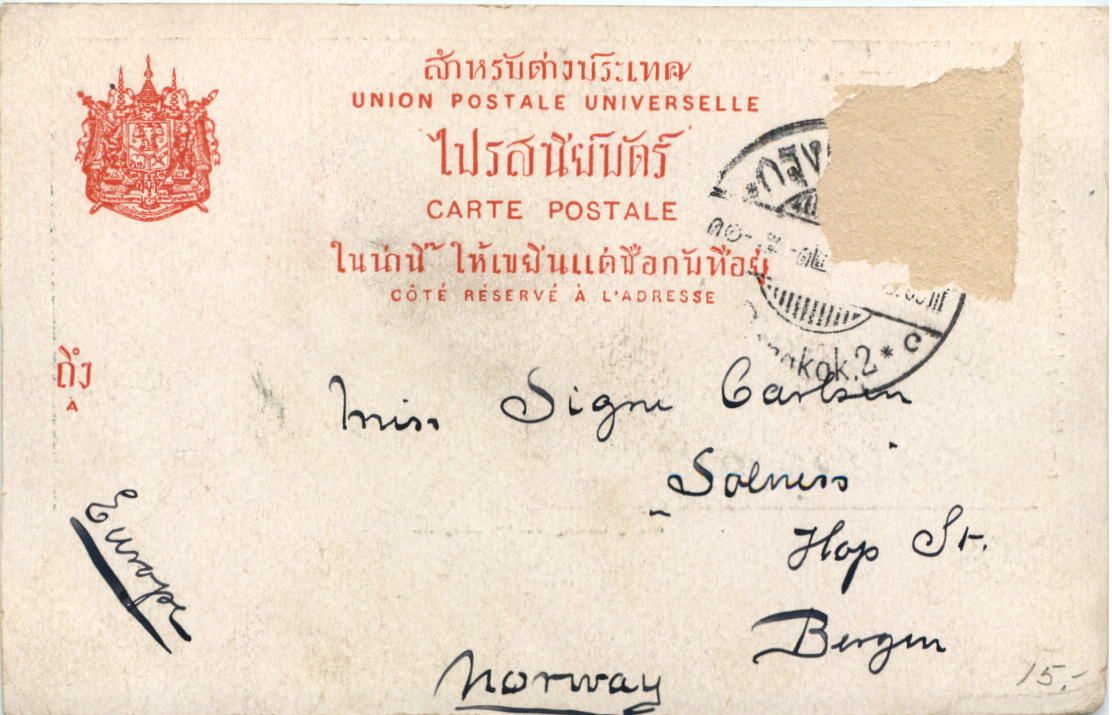 สำหรับต่างประเทศ
UNION POSTALE UNIVERSELLE
ไปรสนียบัตร์
CARTE POSTALE
ในน่านี้ ให้เขียนแต่ชื่อกับที่อยู่
CÔTÉ RÉSERVÉ À L'ADRESSE
ถึง
A
Miss Signe Carlsen
"Solness"
Hop St.
Bergen
Norway
Europe
15.-